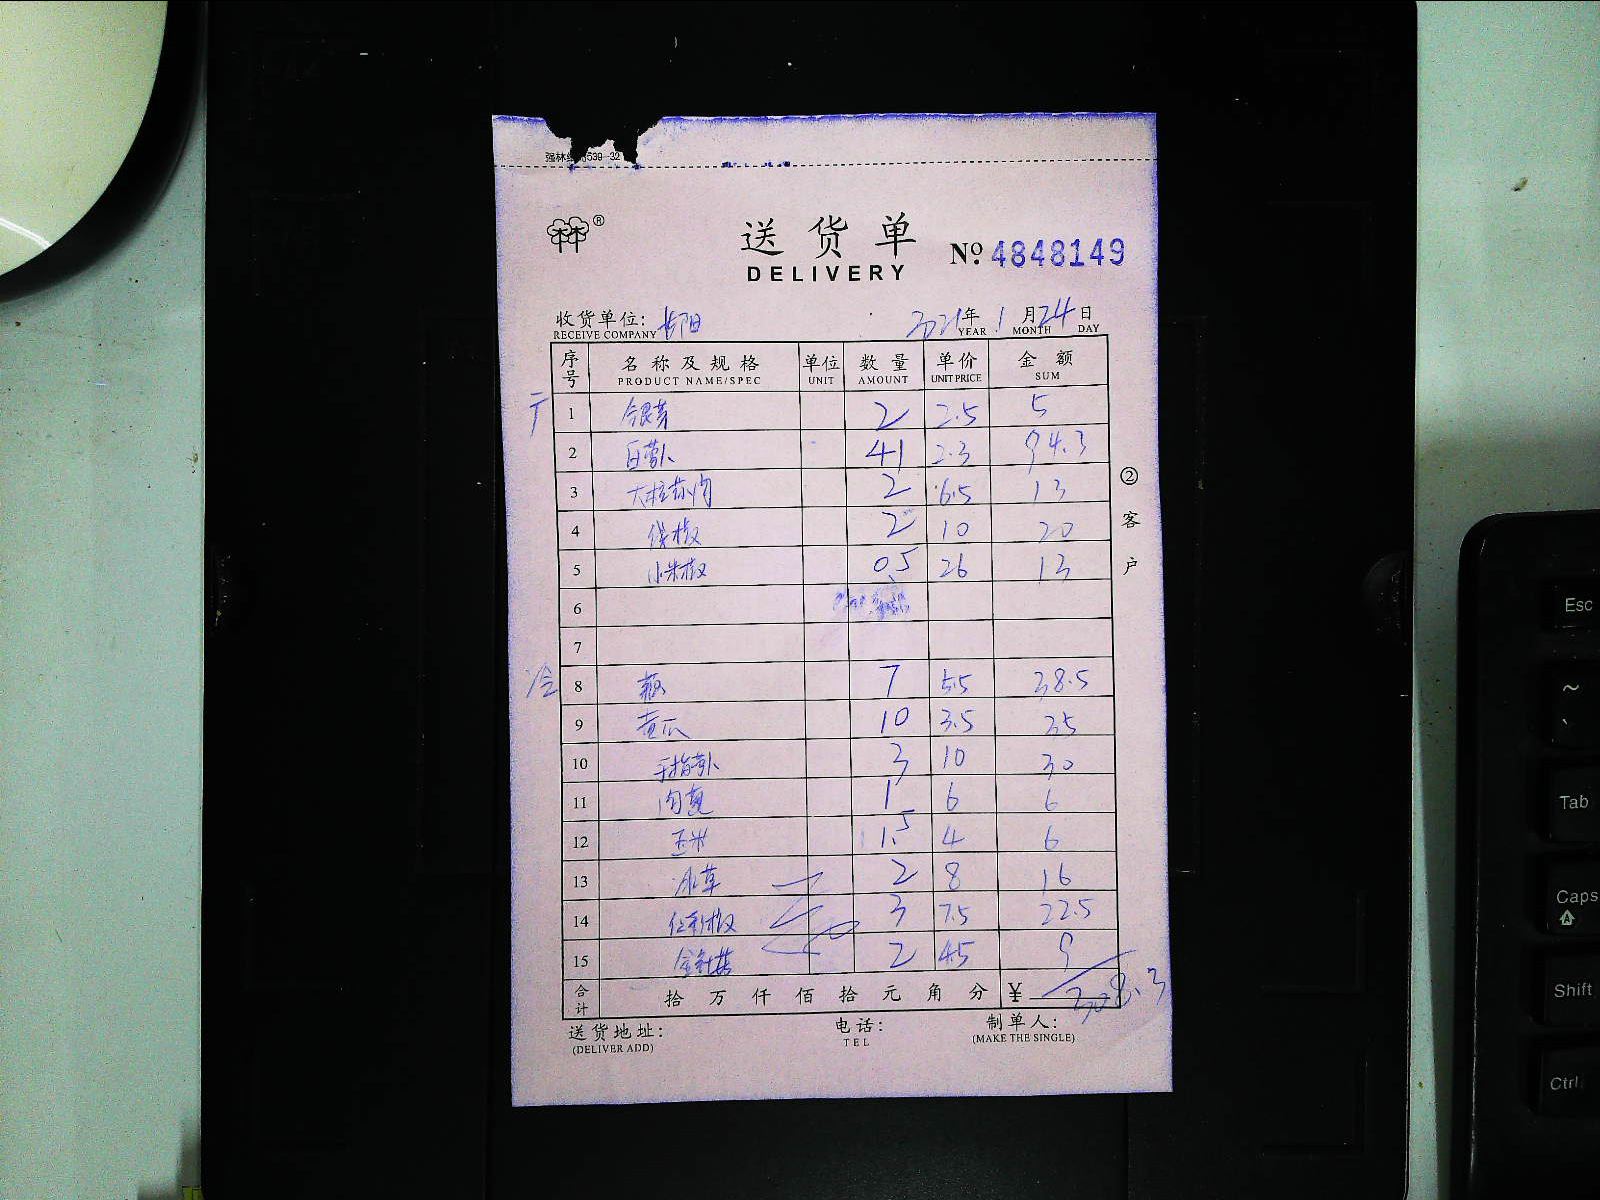 送货单
DELIVERY
No. 4848149
收货单位: 长阳 2021年 1 月 24 日
RECEIVE COMPANY YEAR MONTH DAY
序号 名称及规格 单位 数量 单价 金额
PRODUCT NAME/SPEC UNIT AMOUNT UNIT PRICE SUM
1 2 2.5 5
2 白萝卜 41 2.3 94.3
3 2 6.5 13
4 线椒 2 10 20
5 小米椒 0.5 26 13
6
7
冷 8 7 5.5 38.5
9 黄瓜 10 3.5 35
10 手指萝卜 3 10 30
11 6 6
12 玉米 1.5 4 6
13 冰草 2 8 16
14 3 7.5 22.5
15 金针菇 2 4.5 9
合计 拾 万 仟 佰 拾 元 角 分 ¥ 308.3
送货地址: 电话: 制单人:
(DELIVER ADD) TEL (MAKE THE SINGLE)
② 客户
Esc
~
`
Tab
Caps
Shift
Ctrl